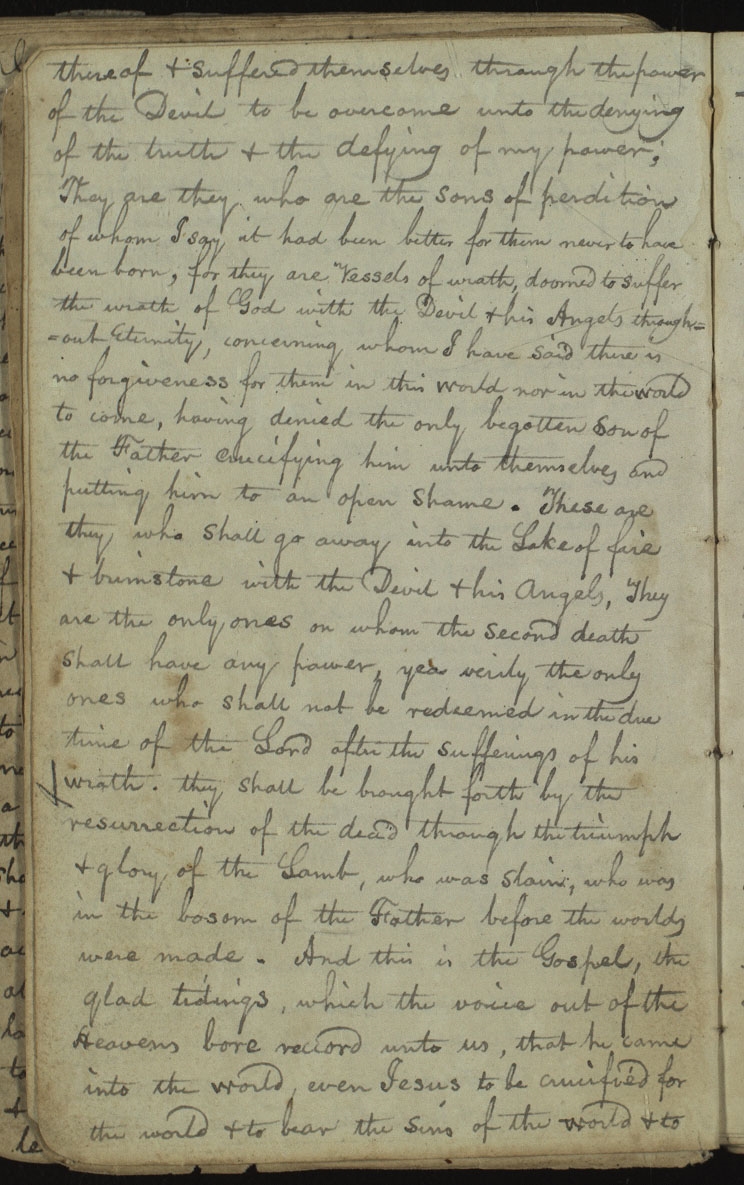 thereof & suffered themselves through the power
of the Devil to be overcome unto the denying
of the truth & the defying of my power;
They are they who are the sons of perdition
of whom I say it had been better for them never to have
been born, for they are Vessels of wrath, doomed to suffer
the wrath of God with the Devil & his Angels through=
=out Eternity, concerning whom I have said there is
no forgiveness for them in this world nor in the world
to come, having denied the only begotten Son of
the Father crucifying him unto themselves and
putting him to an open shame. These are
they who shall go away into the Lake of fire
& brimstone with the Devil & his Angels, They
are the only ones on whom the second death
shall have any power, yea verily the only
ones who shall not be redeemed in the due
time of the Lord after the sufferings of his
wrath. they shall be brought forth by the
resurrection of the dead through the triumph
& glory of the Lamb, who was slain, who was
in the bosom of the Father before the worlds
were made. And this is the Gospel, the
glad tidings, which the voice out of the
Heavens bore record unto us, that he came
into the world, even Jesus to be crucified for
the world & to bear the sins of the world & to